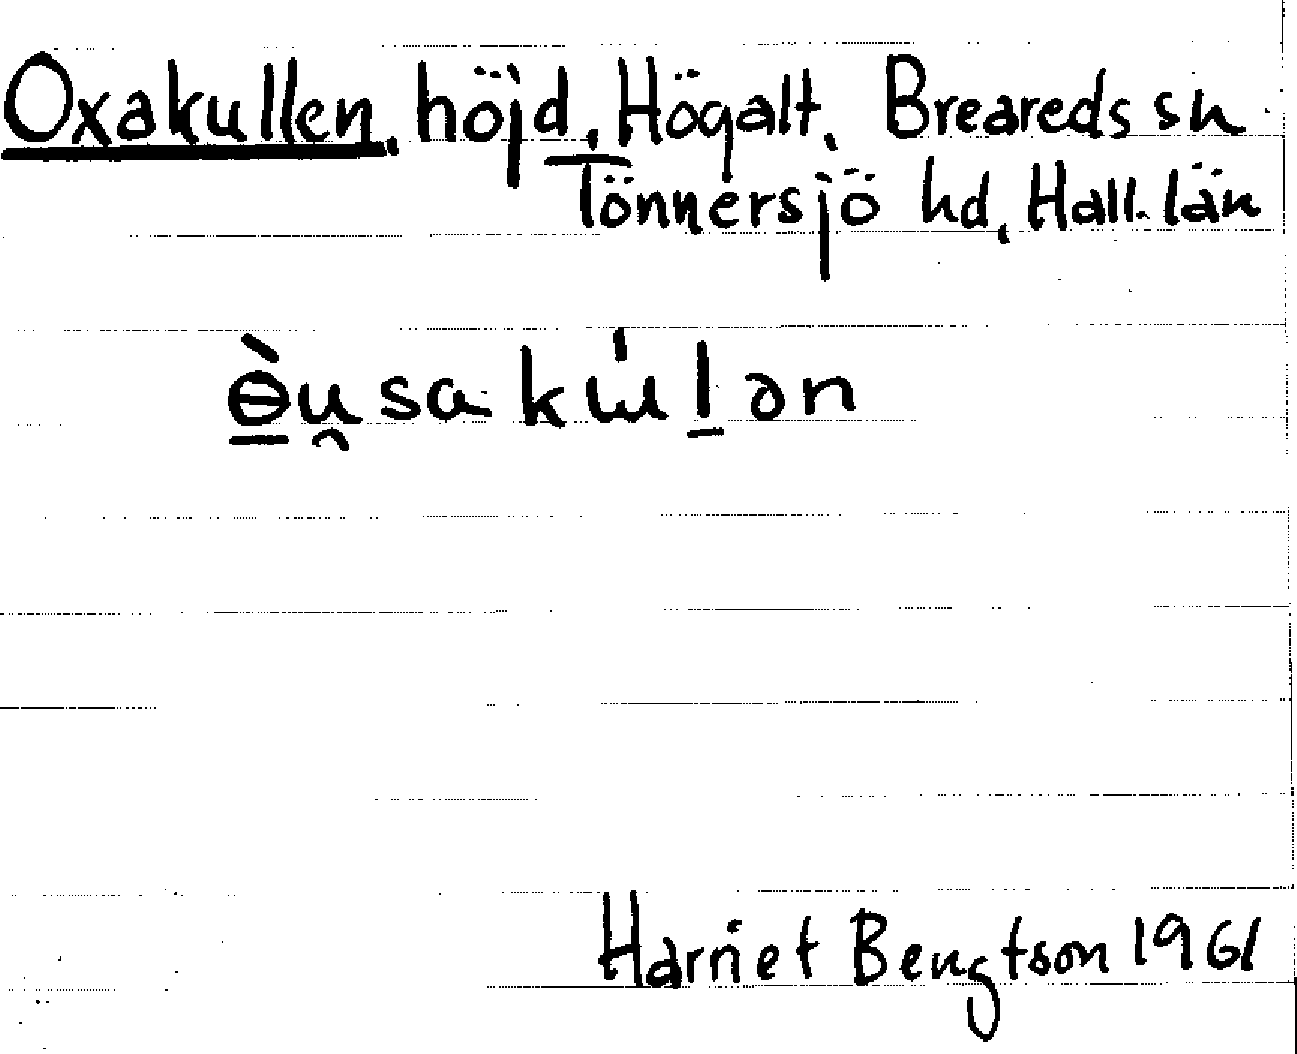 Oxakullen, höjd, Högalt, Breareds sn
Tönnersjö hd, Hall. län
ɵ̱̀u̯sakɯ́ḻən
Harriet Bengtson 1961